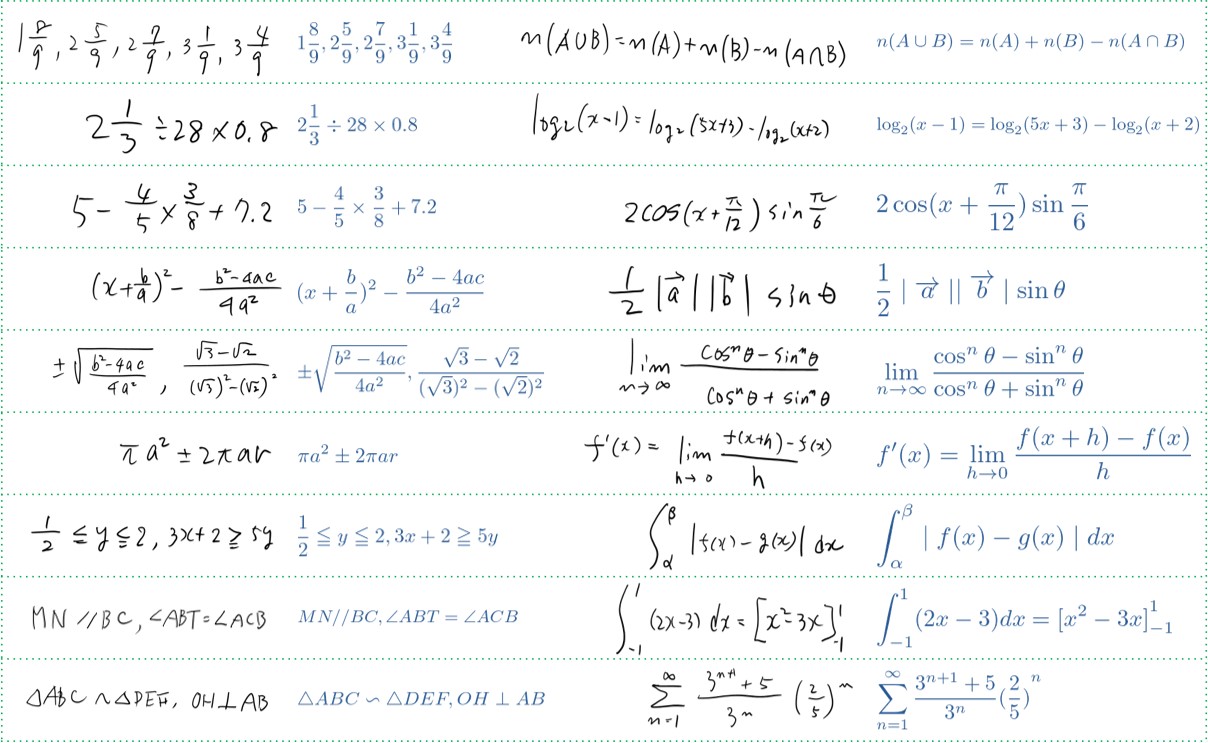 1 8/9, 2 5/9, 2 7/9, 3 1/9, 3 4/9 1 8/9, 2 5/9, 2 7/9, 3 1/9, 3 4/9 n(A∪B)=n(A)+n(B)-n(A∩B) n(A ∪ B) = n(A) + n(B) − n(A ∩ B)
2 1/3 ÷28×0.8 2 1/3 ÷ 28 × 0.8 log₂(x-1)=log₂(5x+3)-log₂(x+2) log₂(x − 1) = log₂(5x + 3) − log₂(x + 2)
5- 4/5 × 3/8 + 7.2 5 − 4/5 × 3/8 + 7.2 2cos(x+π/12) sin π/6 2 cos(x + π/12) sin π/6
(x+b/a)² - (b²-4ac)/(4a²) (x + b/a)² − (b² − 4ac)/(4a²) 1/2 |a⃗||b⃗| sin θ 1/2 | a⃗ || b⃗ | sin θ
±√((b²-4ac)/(4a²)), (√3-√2)/((√3)²-(√2)²) ±√((b² − 4ac)/(4a²)), (√3 − √2)/((√3)² − (√2)²) lim n→∞ (cosⁿθ-sinⁿθ)/(cosⁿθ+sinⁿθ) lim n→∞ (cosⁿ θ − sinⁿ θ)/(cosⁿ θ + sinⁿ θ)
πa²±2πar πa² ± 2πar f'(x)= lim h→0 (f(x+h)-f(x))/h f′(x) = lim h→0 (f(x + h) − f(x))/h
1/2 ≦y≦2, 3x+2≧5y 1/2 ≦ y ≦ 2, 3x + 2 ≧ 5y ∫_α^β |f(x)-g(x)| dx ∫_α^β | f(x) − g(x) | dx
MN//BC, ∠ABT=∠ACB MN//BC, ∠ABT = ∠ACB ∫_-1^1 (2x-3) dx = [x²-3x]_-1^1 ∫_−1^1 (2x − 3)dx = [x² − 3x]_−1^1
△ABC∽△DEF, OH⊥AB △ABC ∽ △DEF, OH ⊥ AB ∑_n=1^∞ (3ⁿ⁺¹+5)/3ⁿ (2/5)ⁿ ∑_n=1^∞ (3ⁿ⁺¹ + 5)/3ⁿ (2/5)ⁿ